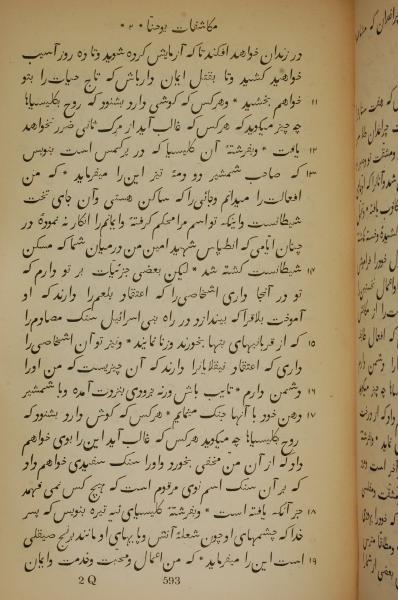 مکاشفات یوحنا * ۲ *
در زندان خواهد افکند تا که آزمایش کرده شوید و تا ده روز آسیب
خواهید کشید و تا بقتل ایمان دار باش که تاج حیات را بتو
۱۱ خواهم بخشید * و هر کس که گوشی دارد بشنود که روح بکلیسیاها
چه چیز میگوید که هر کس که غالب آید از مرگ ثانی ضرر نخواهد
۱۲ یافت * و بفرشتهٔ آن کلیسیا که در پرگمس است بنویس
۱۳ که صاحب شمشیر دو دمهٔ تیز این را میفرماید * که من
افعالت را میدانم و جائی را که ساکن هستی و آن جای تخت
شیطانست و اینکه تو اسم مرا محکم گرفتهٔ و ایمانم را انکار نه نمودهٔ در
چنان ایامی که انطیپاس شهید امین من در میان شما که مسکن
۱۴ شیطانست کشته شد * لیکن بعضی جزئیات بر تو دارم که
تو در آنجا داری اشخاصی را که اعتقاد بلعم را دارند که او
آموخت بلاق را که بیندازد در راه بنی اسرائیل سنگ مصادم را
۱۵ که از قربانیهای بتها بخورند و زنا نمایند * و نیز تو آن اشخاصی را
داری که اعتقاد نیقلایان را دارند که آن چیزیست که من او را
۱۶ دشمن دارم * تایب باش ورنه بزودی بنزدت آمده و با شمشیر
۱۷ دهن خود با آنها جنگ مینمایم * هر کس که گوش دارد بشنود که
روح بکلیسیاها چه میگوید هر کس که غالب آید این را بوی خواهم
داد که از آن من مخفی بخورد و او را سنگ سفیدی خواهم داد
که بر آن سنگ اسم نوی مرقوم است که هیچ کس نمی فهمد
۱۸ جز آنکه یافته است * و بفرشتهٔ کلیسیای تیره بنویس که پسر
خدا که چشمهای او چون شعلهٔ آتش و پایهای او مانند برنج صیقلی
۱۹ است این را میفرماید * که من اعمال و محبت و خدمت و ایمان
2 Q 593